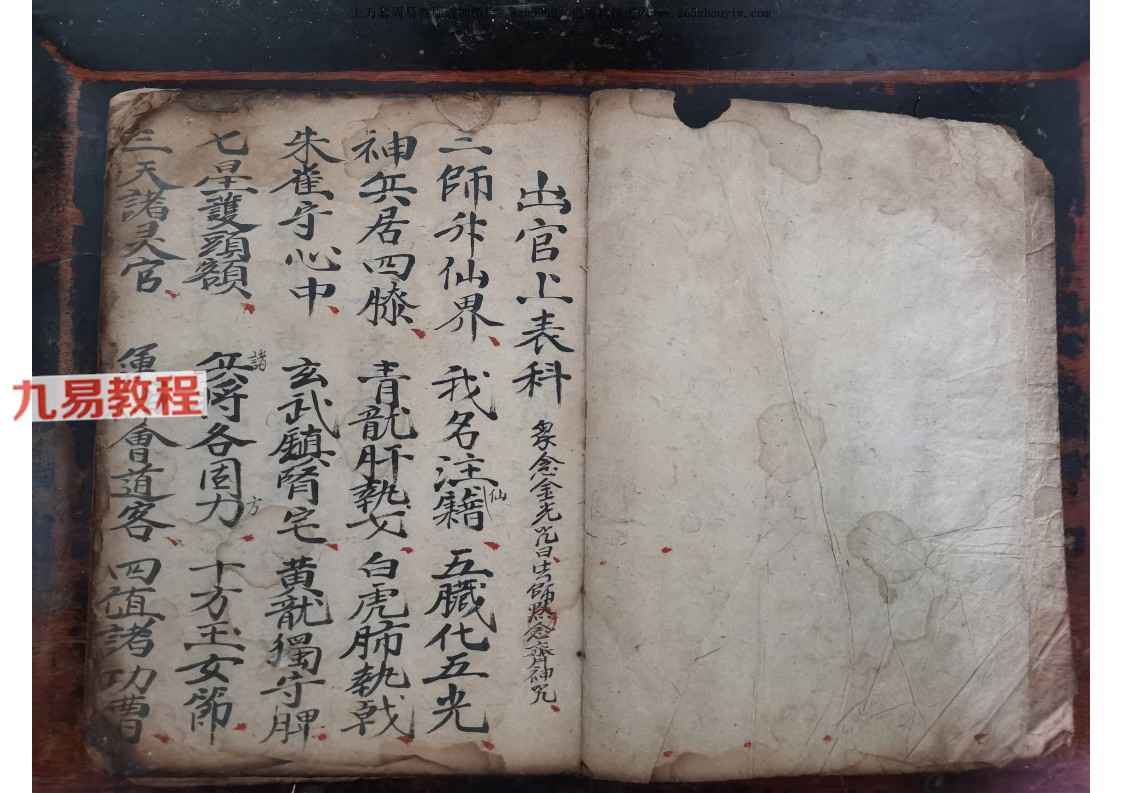 出官上表科 众念金光咒曰 法師默念齊神咒
三師升仙界 我名注仙籍 五臟化五光
神兵居四膝 青龍肝執戈 白虎肺執戟
朱雀守心中 玄武鎮腎宅 黃龍獨守脾
七星護頭額 諸兵將各固方 力 十方玉女節
三天諸灵官 會道客 四值諸功曹
九易教程